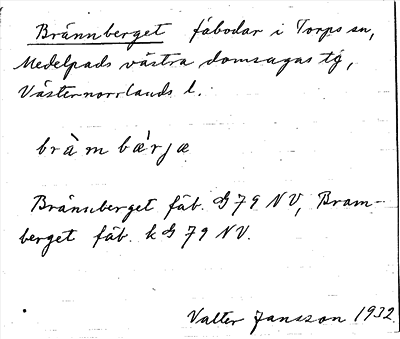 Brännberget fäbodar i Torps sn,
Medelpads västra domsagas tg,
Västernorrlands l.
bràm bær'jæ
Brännberget fäb. G 79 NV, Bram-
berget fäb. k G 79 NV.
Valter Jansson 1932.